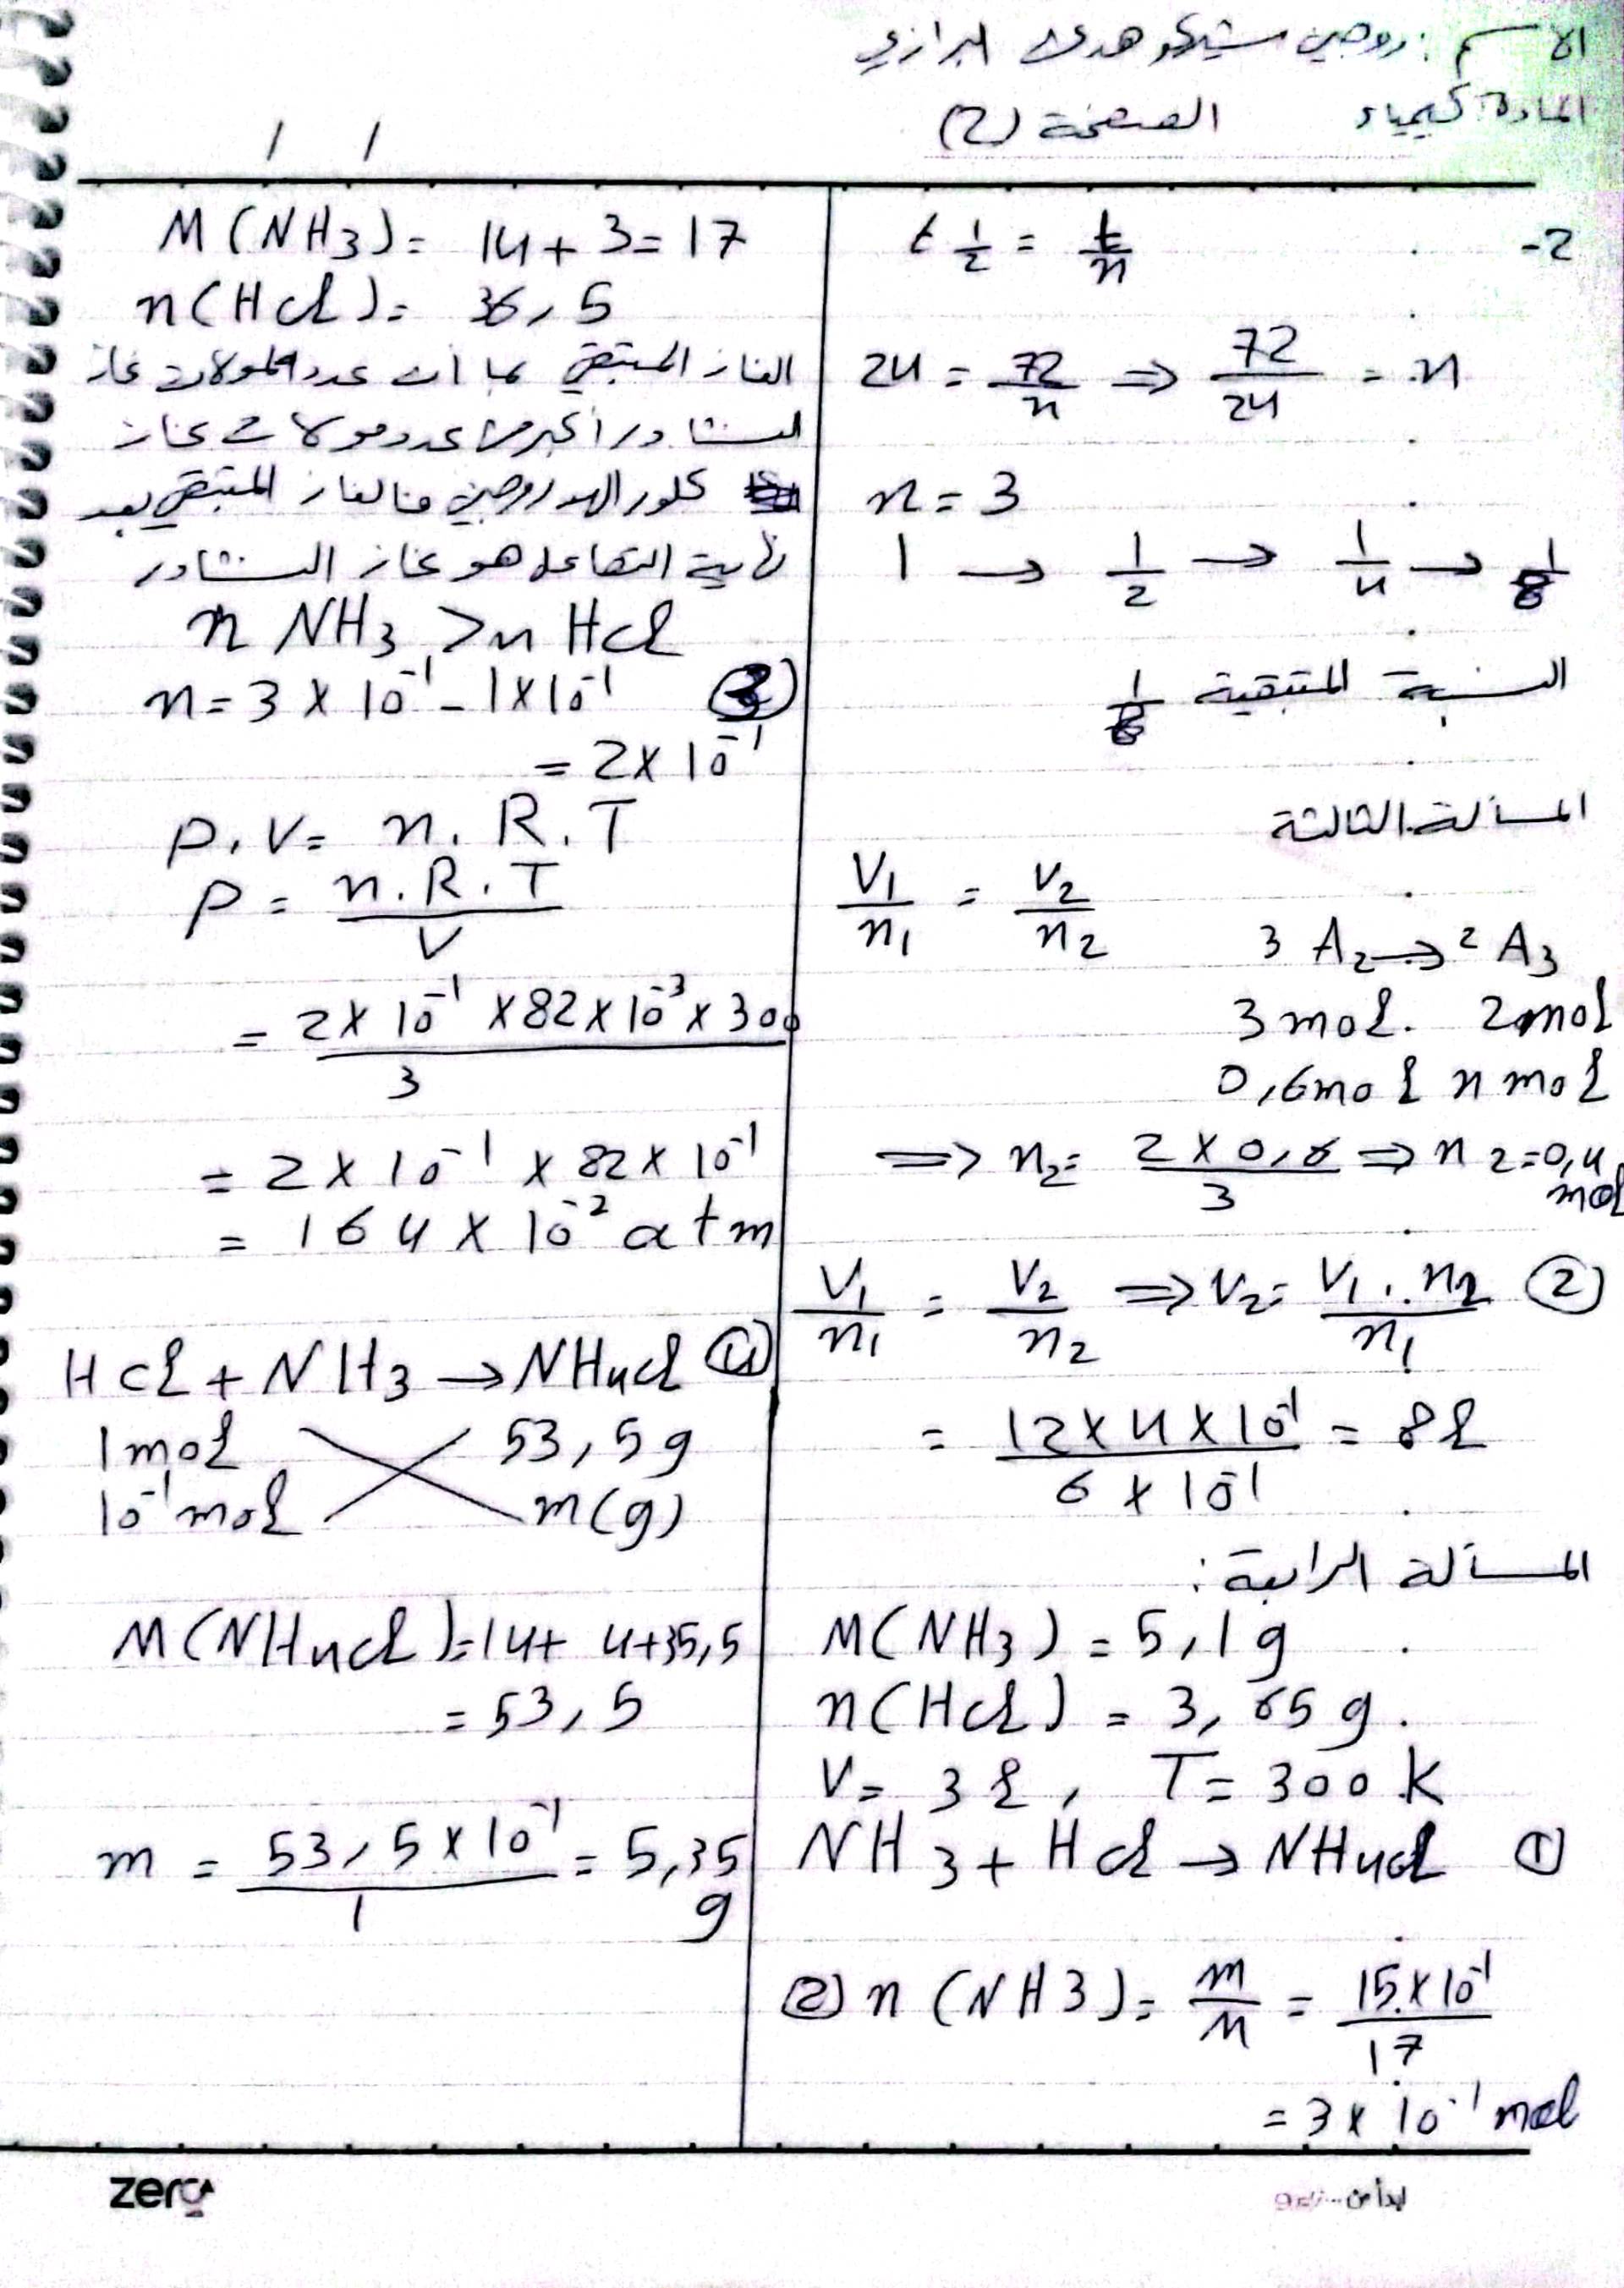 الاسم : روجين شيكو هدى البرازي
المادة كيمياء الصفحة (2)
/ /
-2 t 1/2 = t/n
24 = 72/n ⇒ 72/24 = n
n = 3
1 → 1/2 → 1/4 → 1/8
النسبة المتبقية 1/8
المسألة الثالثة
V1/n1 = V2/n2
3 A2 → 2 A3
3 mol. 2 mol
0,6 mol n mol
⇒ n2 = 2 × 0,6 / 3 ⇒ n2 = 0,4 mol
V1/n1 = V2/n2 ⇒ V2 = V1 . n2 / n1 ②
= 12 × 4 × 10^-1 / 6 × 10^-1 = 8 l
المسألة الرابعة :
M(NH3) = 5,1 g
n(HCl) = 3,65 g.
V = 3 l, T = 300 K
NH3 + HCl → NH4Cl ①
② n (NH3) = m/M = 15 × 10^-1 / 17
= 3 × 10^-1 mol
M(NH3) = 14 + 3 = 17
n(HCl) = 36,5
الغاز المتبقي بما أن عدد المولات غاز
النشادر أكبر من عدد مولات غاز
كلور الهدروجين فالغاز المتبقي بعد
نهاية التفاعل هو غاز النشادر
n NH3 > n HCl
n = 3 × 10^-1 - 1 × 10^-1 ③
= 2 × 10^-1
P . V = n . R . T
P = n . R . T / V
= 2 × 10^-1 × 82 × 10^-3 × 300 / 3
= 2 × 10^-1 × 82 × 10^-1
= 164 × 10^-2 atm
HCl + NH3 → NH4Cl ④
1 mol 53,5 g
10^-1 mol m(g)
M(NH4Cl) = 14 + 4 + 35,5
= 53,5
m = 53,5 × 10^-1 / 1 = 5,35 g
zero
ابدأ من